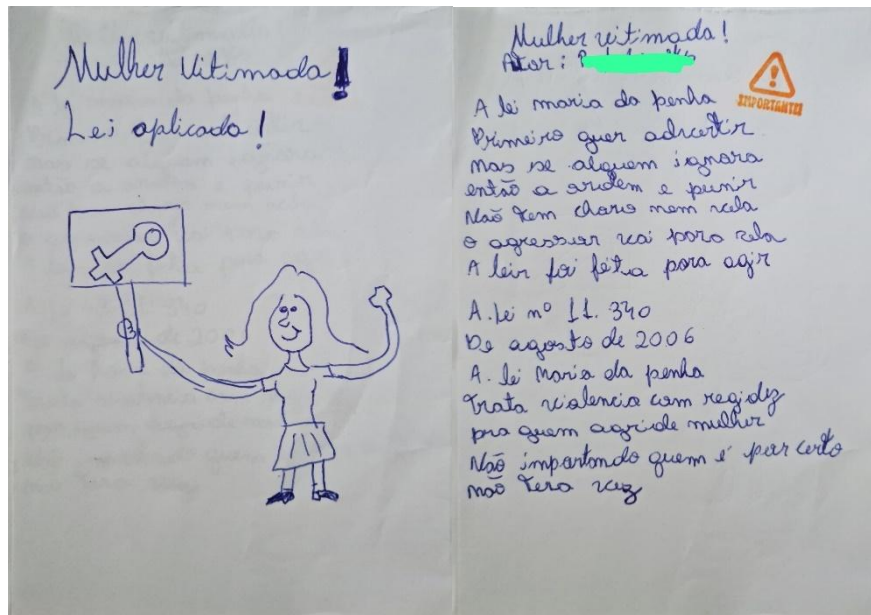 Mulher Vitimada!
Lei aplicada!
Mulher vitimada!
Ator:
IMPORTANTE!
A lei maria da penha
Primeiro quer advertir
Mas se alguem ignora
então a ordem e punir
Não tem choro nem vela
o agressor vai para cela
A leir foi feita para agir
A. Lei nº 11. 340
De agosto de 2006
A. lei Maria da penha
Trata violencia com regidez
pra quem agride mulher
Não importando quem é por certo
não tera vez